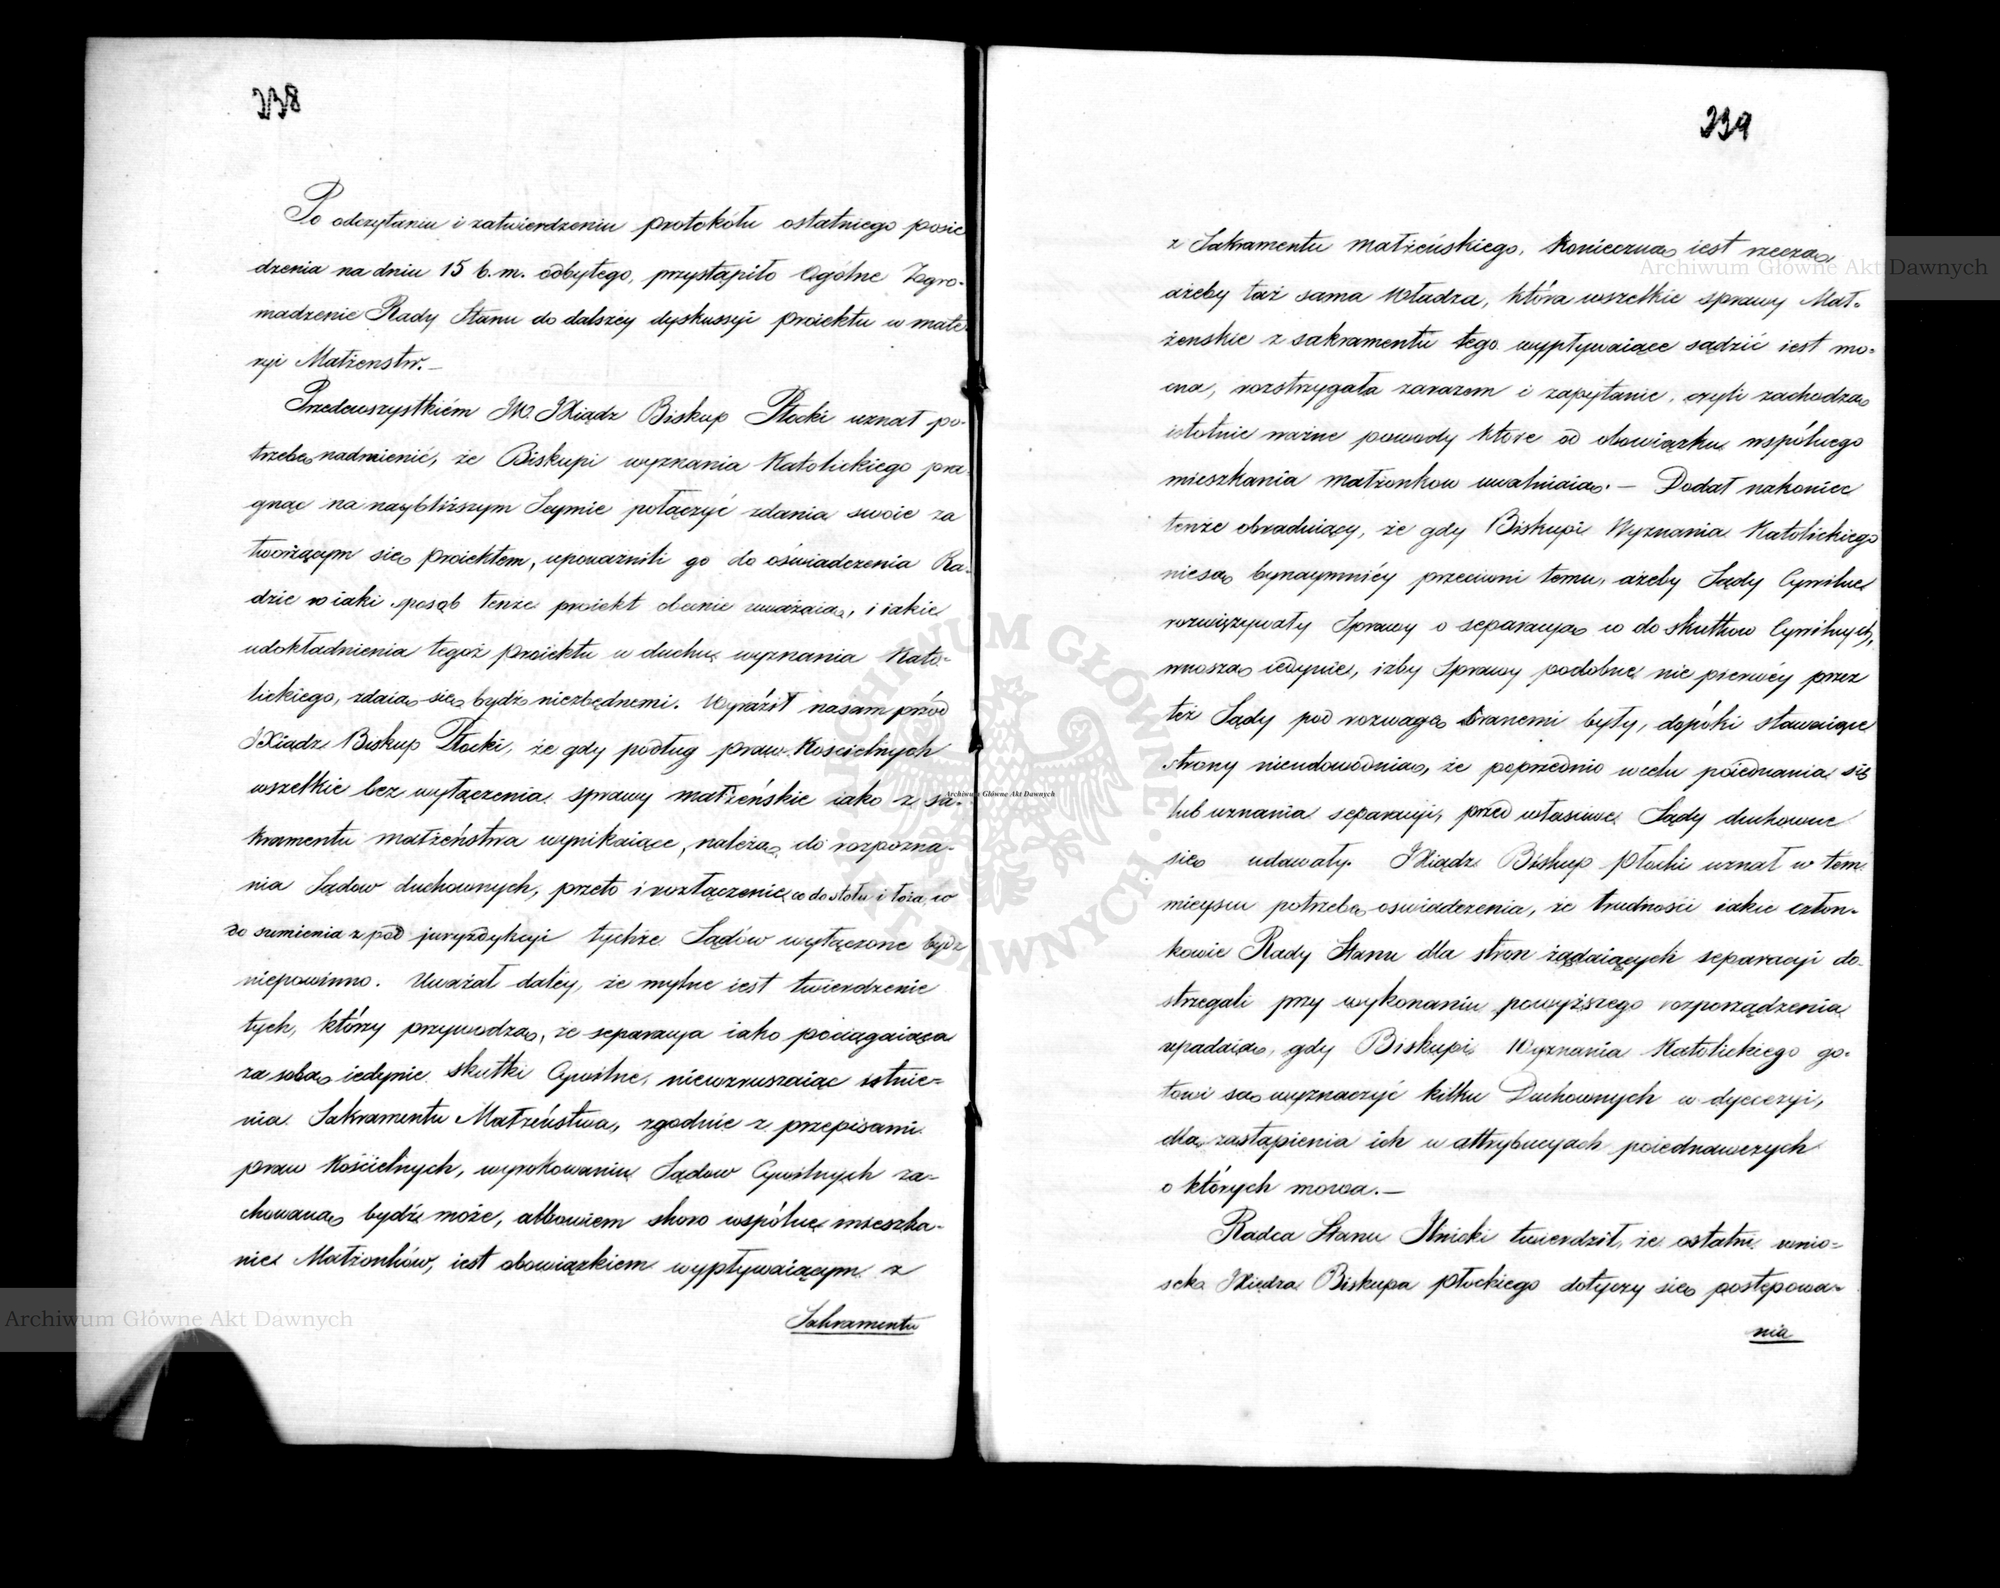 238
Po odczytaniu i zatwierdzeniu protokółu ostatniego posie
dzenia na dniu 15 b.m. odbytego, przystąpiło Ogólne Zgro-
madzenie Rady Stanu do dalszéy dyskussyi proiektu w mate
ryi Małżenstw.—
Przedewszystkiém JW. JXiądz Biskup Płocki uznał po-
trzebę nadmienić, że Biskupi wyznania Katolickiego pra
gnąc na naybliższym Seymie połączyć zdania swoie za
tworzącym się proiektem, upoważnili go do oświadczenia Ra-
dzie w iaki sposób tenże proiekt obecnie uważaią, i iakie
udokładnienia tegoż proiektu w duchu wyznania Kato-
lickiego, zdaią się bydź niezbędnemi. Wyráźił nasamprzód
JXiądz Biskup Płocki, że gdy podług praw Kościelnych
wszelkie bez wyłączenia sprawy małżeńskie iako z sa-
kramentu małżeństwa wynikaiące, należą do rozpozna-
nia Sądow duchownych, przeto i rozłączenie co do stołu i łoża, co
do sumienia z pod juryzdykcyi tychże Sądów wyłączone bydź
niepowinno. Uważał daléy, że mylne iest twierdzenie
tych, którzy przywodzą, że separacya iako pociągaiąca
za sobą iedynie skutki Cywilne, niewzruszaiąc istnie-
nia Sakramentu Małżeństwa, zgodnie z przepisami
praw Kościelnych, wyrokowaniu Sądow Cywilnych za-
chowaną bydź może, albowiem skoro wspólne mieszka-
nie Małżonków, iest obowiązkiem wypływaiącym z
Sakramentu
239
z Sakramentu małżeńskiego, konieczną iest rzeczą
ażeby taż sama Władza, która wszelkie sprawy Mał-
żenskie z sakramentu tego wypływaiące sądzić iest mo-
cna, rozstrzygała zarazem i zapytanie, czyli zachodzą
istotnie ważne powody które od obowiązku wspólnego
mieszkania małżonkow uwalniaią.— Dodał nakoniec
tenże obraduiący, że gdy Biskupi Wyznania Katolickiego
niesą bynaymniéy przeciwni temu, ażeby Sądy Cywilne
rozwiązywały Sprawy o separacyą co do skutkow Cywilnych,
wnoszą iedynie, iżby Sprawy podobne nie pierwéy przez
też Sądy pod rozwagę branemi były, dopóki stawaiące
strony nieudowodnią, że poprzednio w celu poiednania się
lub uznania separacyi, przed właściwe Sądy duchowne
się udawały. JXiądz Biskup Płocki uznał w tem
mieyscu potrzebę oswiadczenia, że trudności iakie człon-
kowie Rady Stanu dla stron żądaiących separacyi do-
strzegali przy wykonaniu powyższego rozporządzenia
upadaią, gdy Biskupi Wyznania Katolickiego go-
towi są wyznaczyć kilku Duchownych w dyecezyi,
dla zastąpienia ich w attrybucyach poiednawczych
o których mowa.—
Radca Stanu Ilnicki twierdził, że ostatni wnio-
sek JXiędza Biskupa Płockiego dotyczy się postępowa-
nia
Archiwum Główne Akt Dawnych
Archiwum Główne Akt Dawnych
Archiwum Główne Akt Dawnych
ARCHIWUM GŁÓWNE AKT DAWNYCH